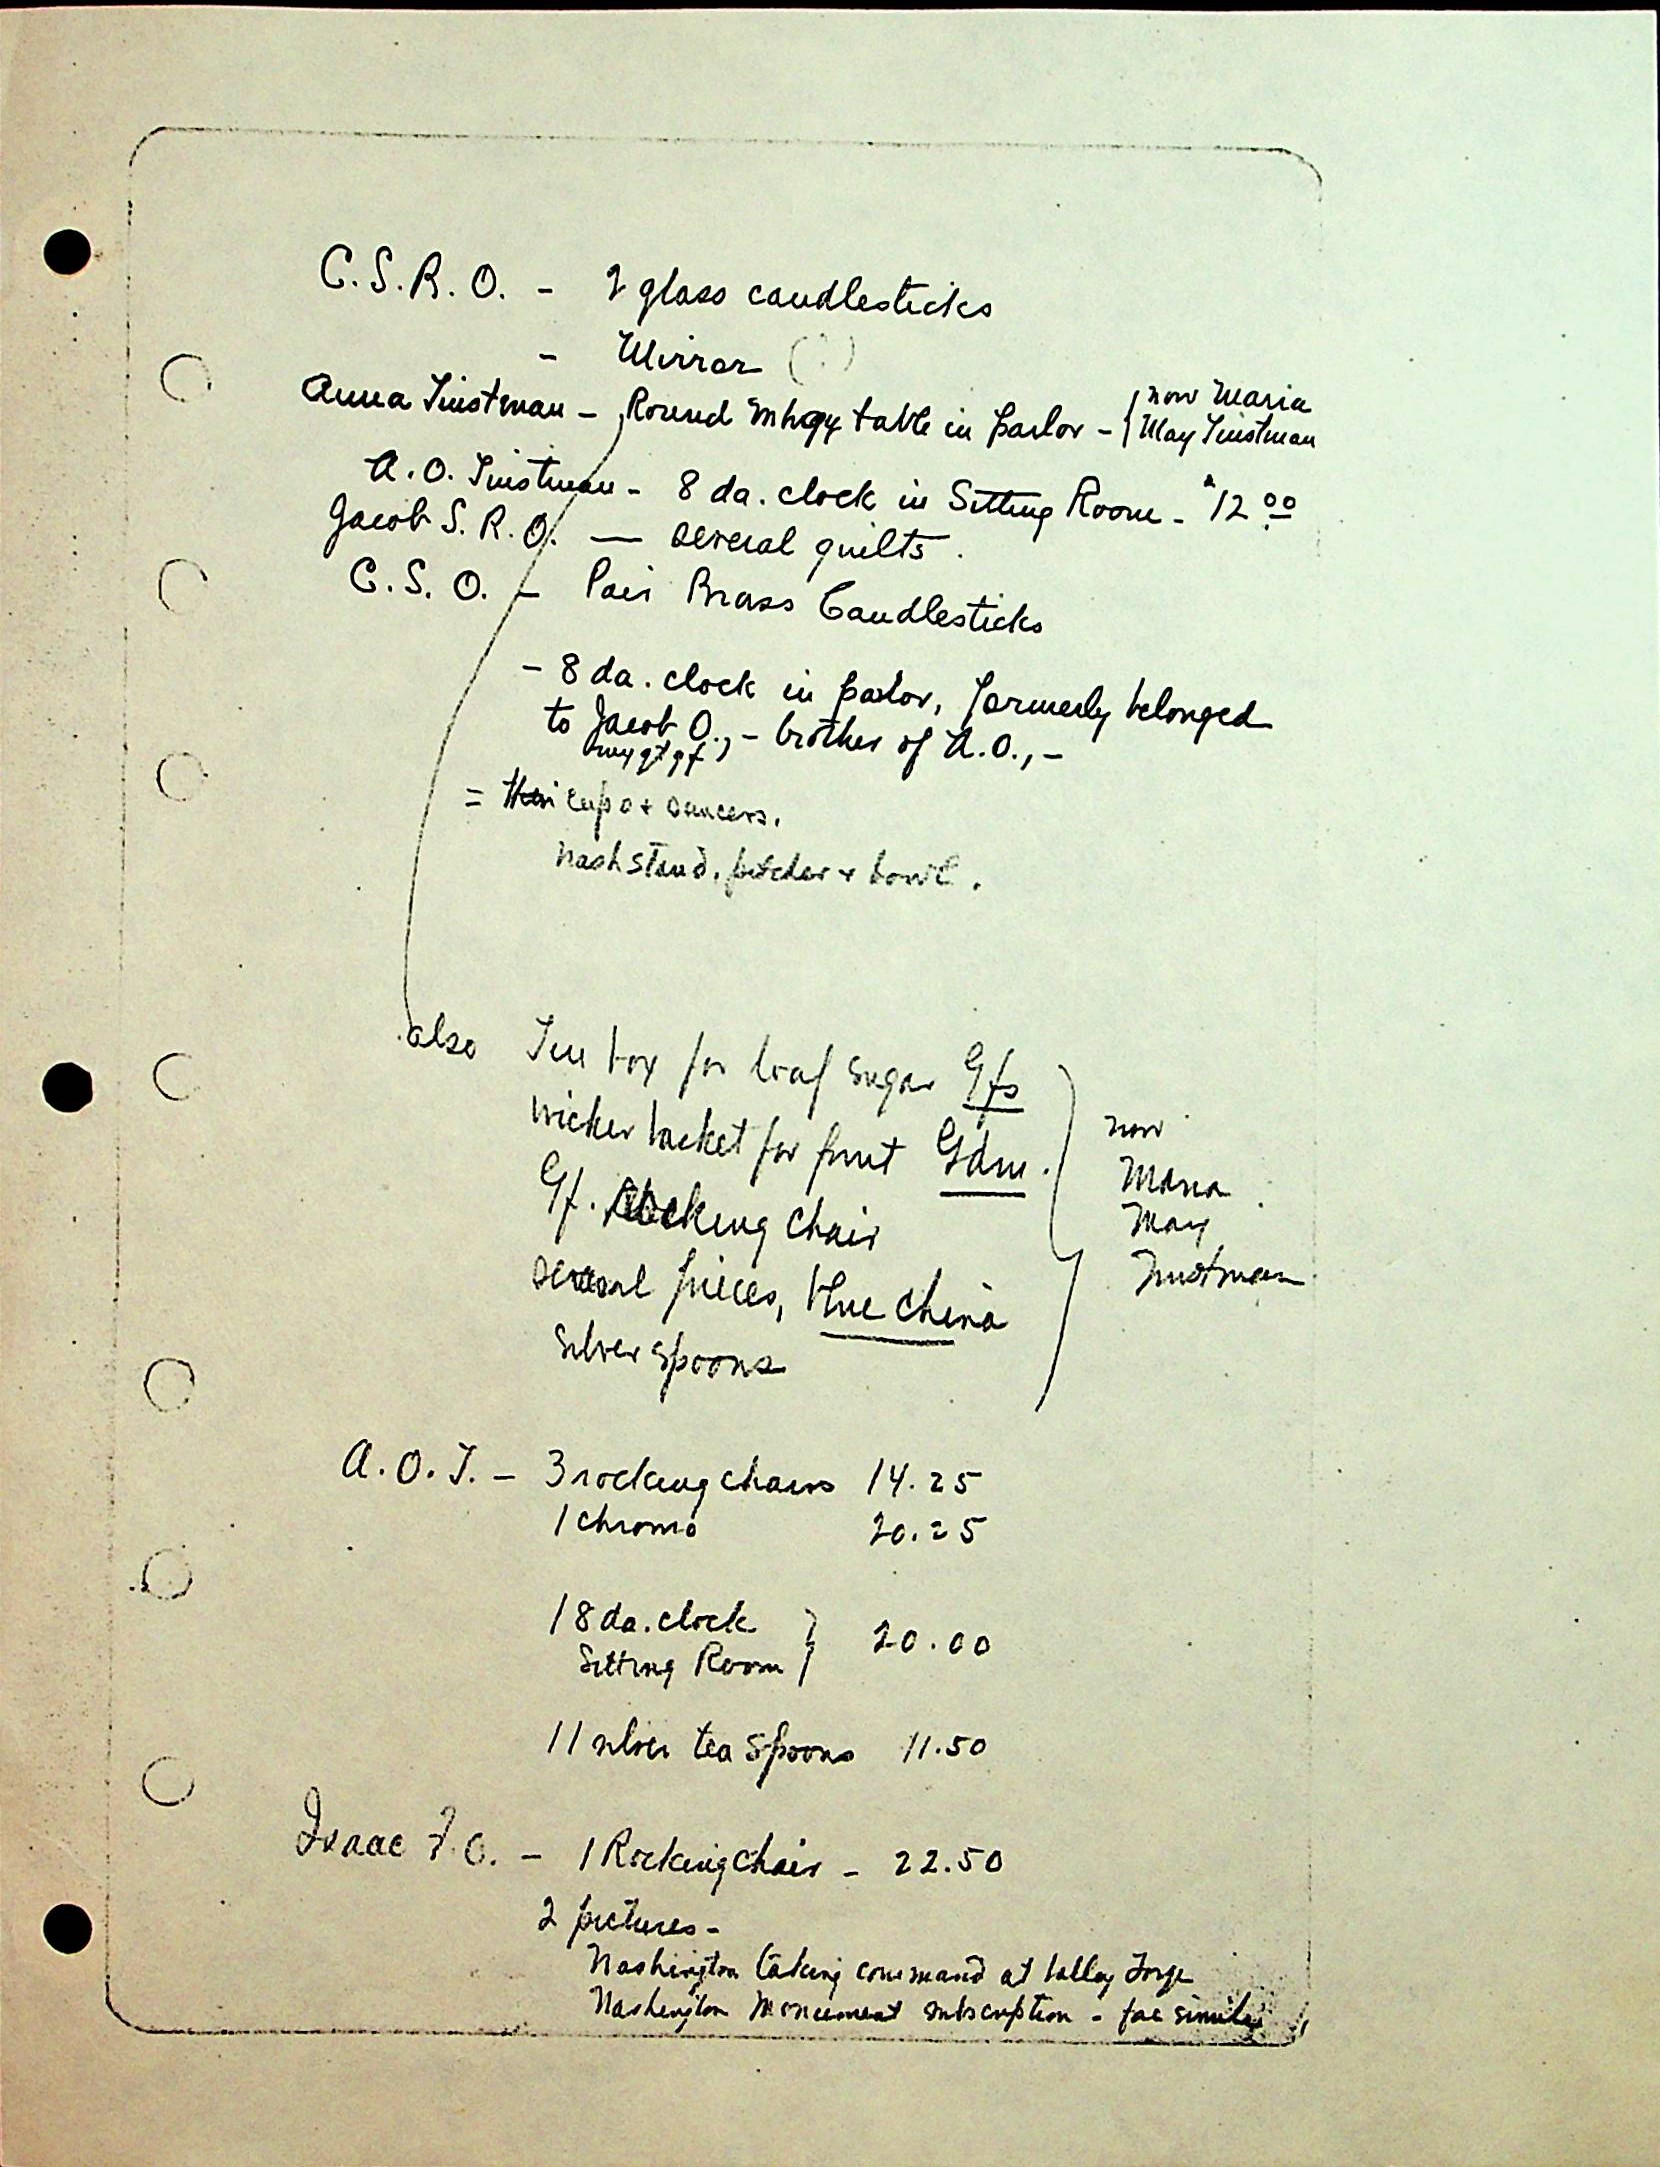 C.S.R.O. - 2 glass candlesticks
- Mirror (?)
Anna Tinstman - Round mhgy table in parlor - { now Maria
May Tinstman
A.O. Tinstman - 8 da. clock in Sitting Room - $12 00
Jacob S.R.O. — several quilts.
C.S.O. - Pair Brass Candlesticks
- 8 da. clock in parlor, formerly belonged
to Jacob O., - brother of A.O., -
my gt gf
= cups + saucers.
Washstand, pitcher + bowl.
also Tin box for loaf sugar Gfs
Wicker basket for fruit Gdm.
Gf. Rocking chair
several pieces, blue china
Silver spoons
now
Maria
May
Tinstman
A.O.T. - 3 rocking chairs 14.25
1 chromo 20.25
1 8 da. clock
Sitting Room } 20.00
11 silver tea spoons 11.50
Isaac F.O. - 1 Rocking chair - 22.50
2 pictures -
Washington taking command at Valley Forge
Washington Monument subscription - fac simile